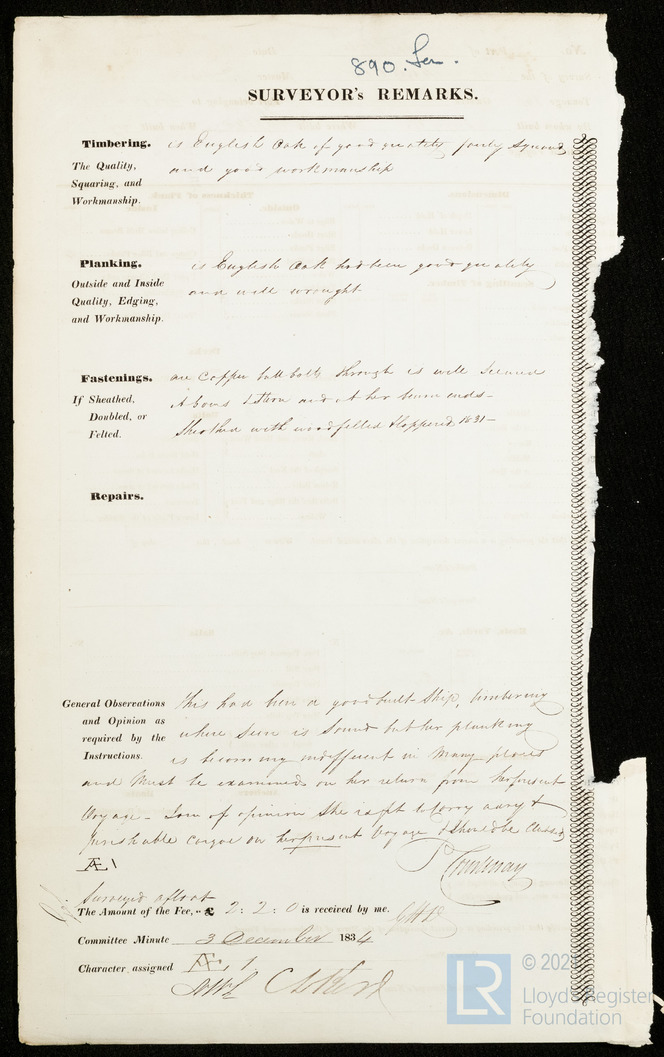 890. Sen.
SURVEYOR's REMARKS.
Timbering. is English Oak of good quality fairly squared
The Quality, and good workmanship
Squaring, and
Workmanship.
Planking. is English Oak had been good quality
Outside and Inside and well wrought
Quality, Edging,
and Workmanship.
Fastenings. are Copper butt bolts through is well secured
If Sheathed, at bows & Stern and at her beam ends –
Doubled, or Sheathed with wood felted & Coppered 1831 –
Felted.
Repairs.
General Observations This had been a good built Ship, timbering
and Opinion as where seen is Sound but her planking
required by the is becoming indifferent in many places
Instructions.
and Must be examined on her return from her present
Voyage – I am of opinion She is fit to carry a dry &
perishable cargoe on her present Voyage & Should be Classed
Æ 1
Surveyed afloat
The Amount of the Fee, -- £ 2 : 2 : 0 is received by me.
Committee Minute 3 December 1834
Character assigned Æ. 1
LR
Lloyd's Register
Foundation